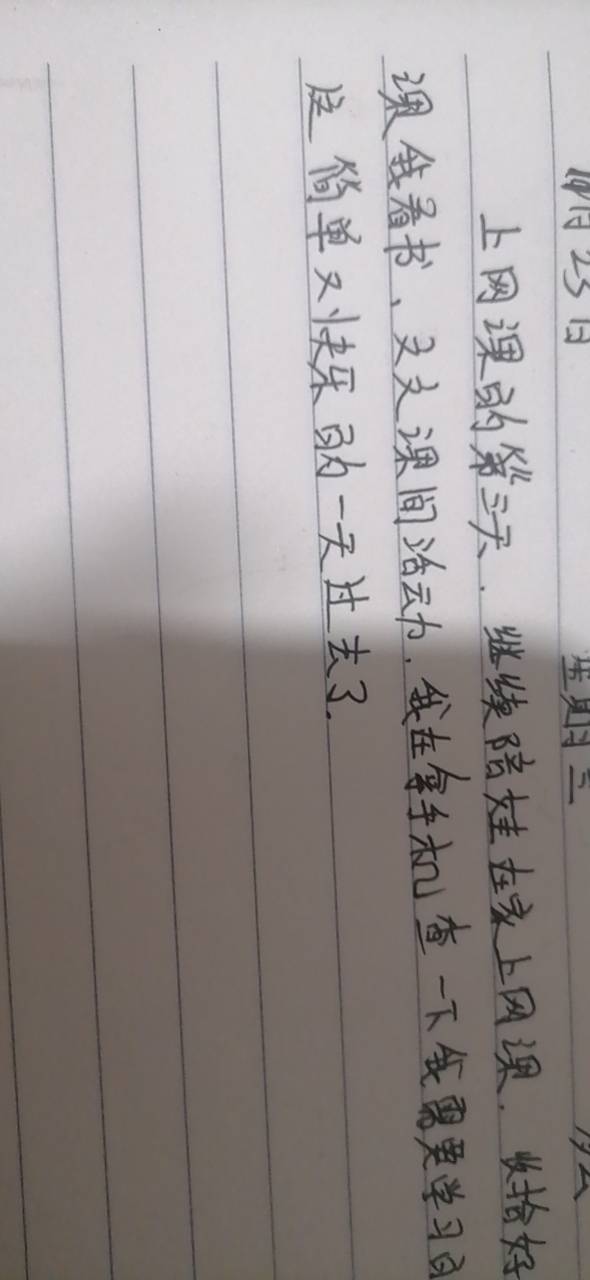 月23日 星期三
上网课的第三天. 继续陪娃在家上网课. 收拾好
课我看书、文文课间活动. 我在拿手机查一下我需要学习的
这简单又快乐的一天过去了.